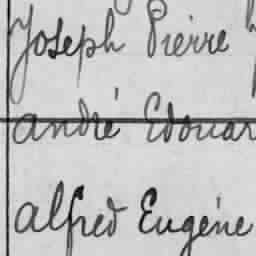 Joseph Pierre
André Edouar
Alfred Eugéne